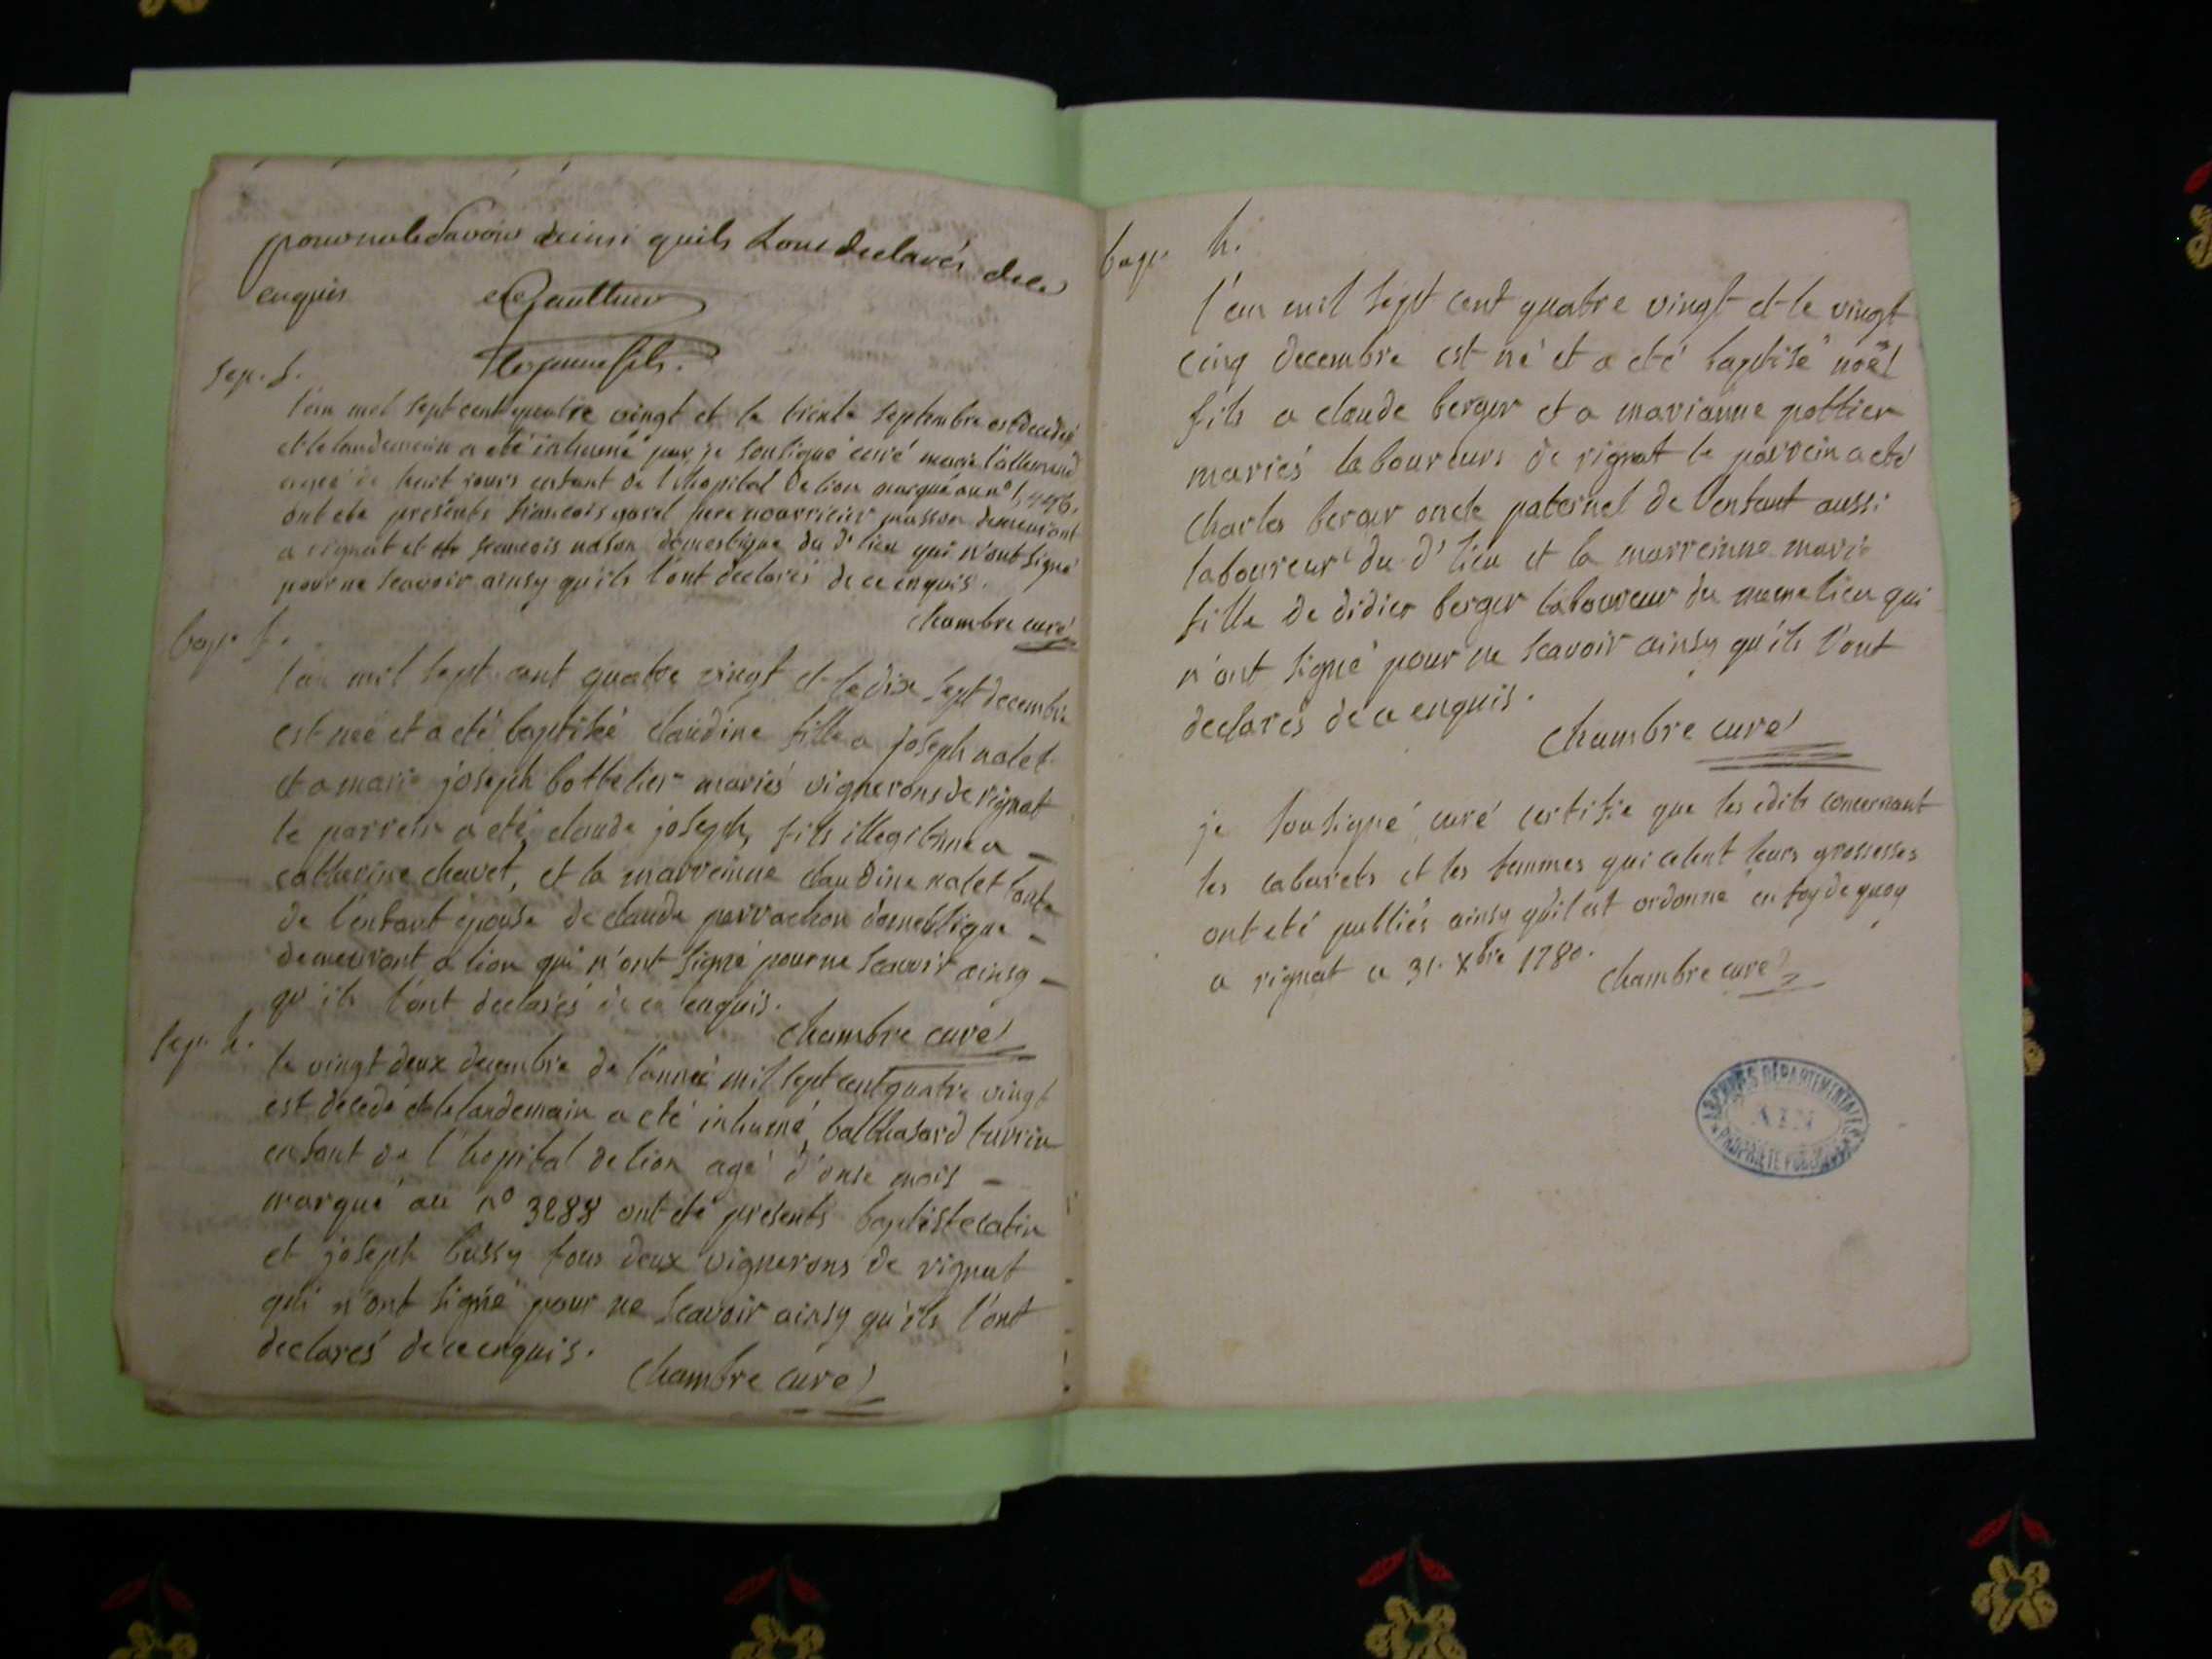 pour ne le savoir ainsi quils Lont declarés de ce
enquis Gauthier
fils.
sep. f.
l'an mil sept cent quatre vingt et le trente septembre est decedée
et le landemain a eté inhumé par je sousigné curé marie l'allemand
agée de huit jours enfant de l'hopital de lion marqué au n°
ont eté presents francois garel pere nourricier masson demeurant
a rignat et francois domestique du d' lieu qui n'ont signé
pour ne scavoir ainsy qu'ils l'ont declarés de ce enquis.
Chambre curé
bapt f.
l'an mil sept cent quatre vingt et le dix sept decembre
est née et a eté baptisé claudine fille a joseph nalet
et a marie joseph bottelier mariés vignerons de rignat
le parrein a eté claude joseph, fils illegitime a
catherine chavet, et la marreinne claudine nalet tante
de l'enfant epouse de claude perrachon domestique
demeurant a lion qui n'ont signé pour ne scavoir ainsy
qu'ils l'ont declarés de ce enquis.
Chambre curé
sep. h.
le vingt deux decembre de l'année mil sept cent quatre vingt
est décedé et le landemain a eté inhumé, balthasard turrin
enfant de l'hopital de lion agé d'onse mois
marqué au n° 3288 ont eté presents baptiste catin
et joseph bussy tous deux vignerons de rignat
qui n'ont signé pour ne scavoir ainsy qu'ils l'ont
declarés de ce enquis.
Chambre curé
bapt h.
l'an mil sept cent quatre vingt et le vingt
cinq decembre est né et a eté baptisé noël
fils a claude berger et a marianne pottier
mariés laboureurs de rignat le parrein a eté
charles berger oncle paternel de l'enfant aussi
laboureur du d' lieu et la marreinne marie
fille de didier berger laboureur du meme lieu qui
n'ont signé pour ne scavoir ainsy qu'ils l'ont
declarés de ce enquis.
Chambre curé
je sousigné curé certifie que les edits concernant
les cabarets et les femmes qui celent leurs grossesses
ont eté publiés ainsy qu'il est ordonné en foy de quoy
a rignat ce 31. Xbre 1780.
Chambre curé
ARCHIVES DÉPARTEMENTALES
AIN
PROPRIÉTÉ PUBLIQUE